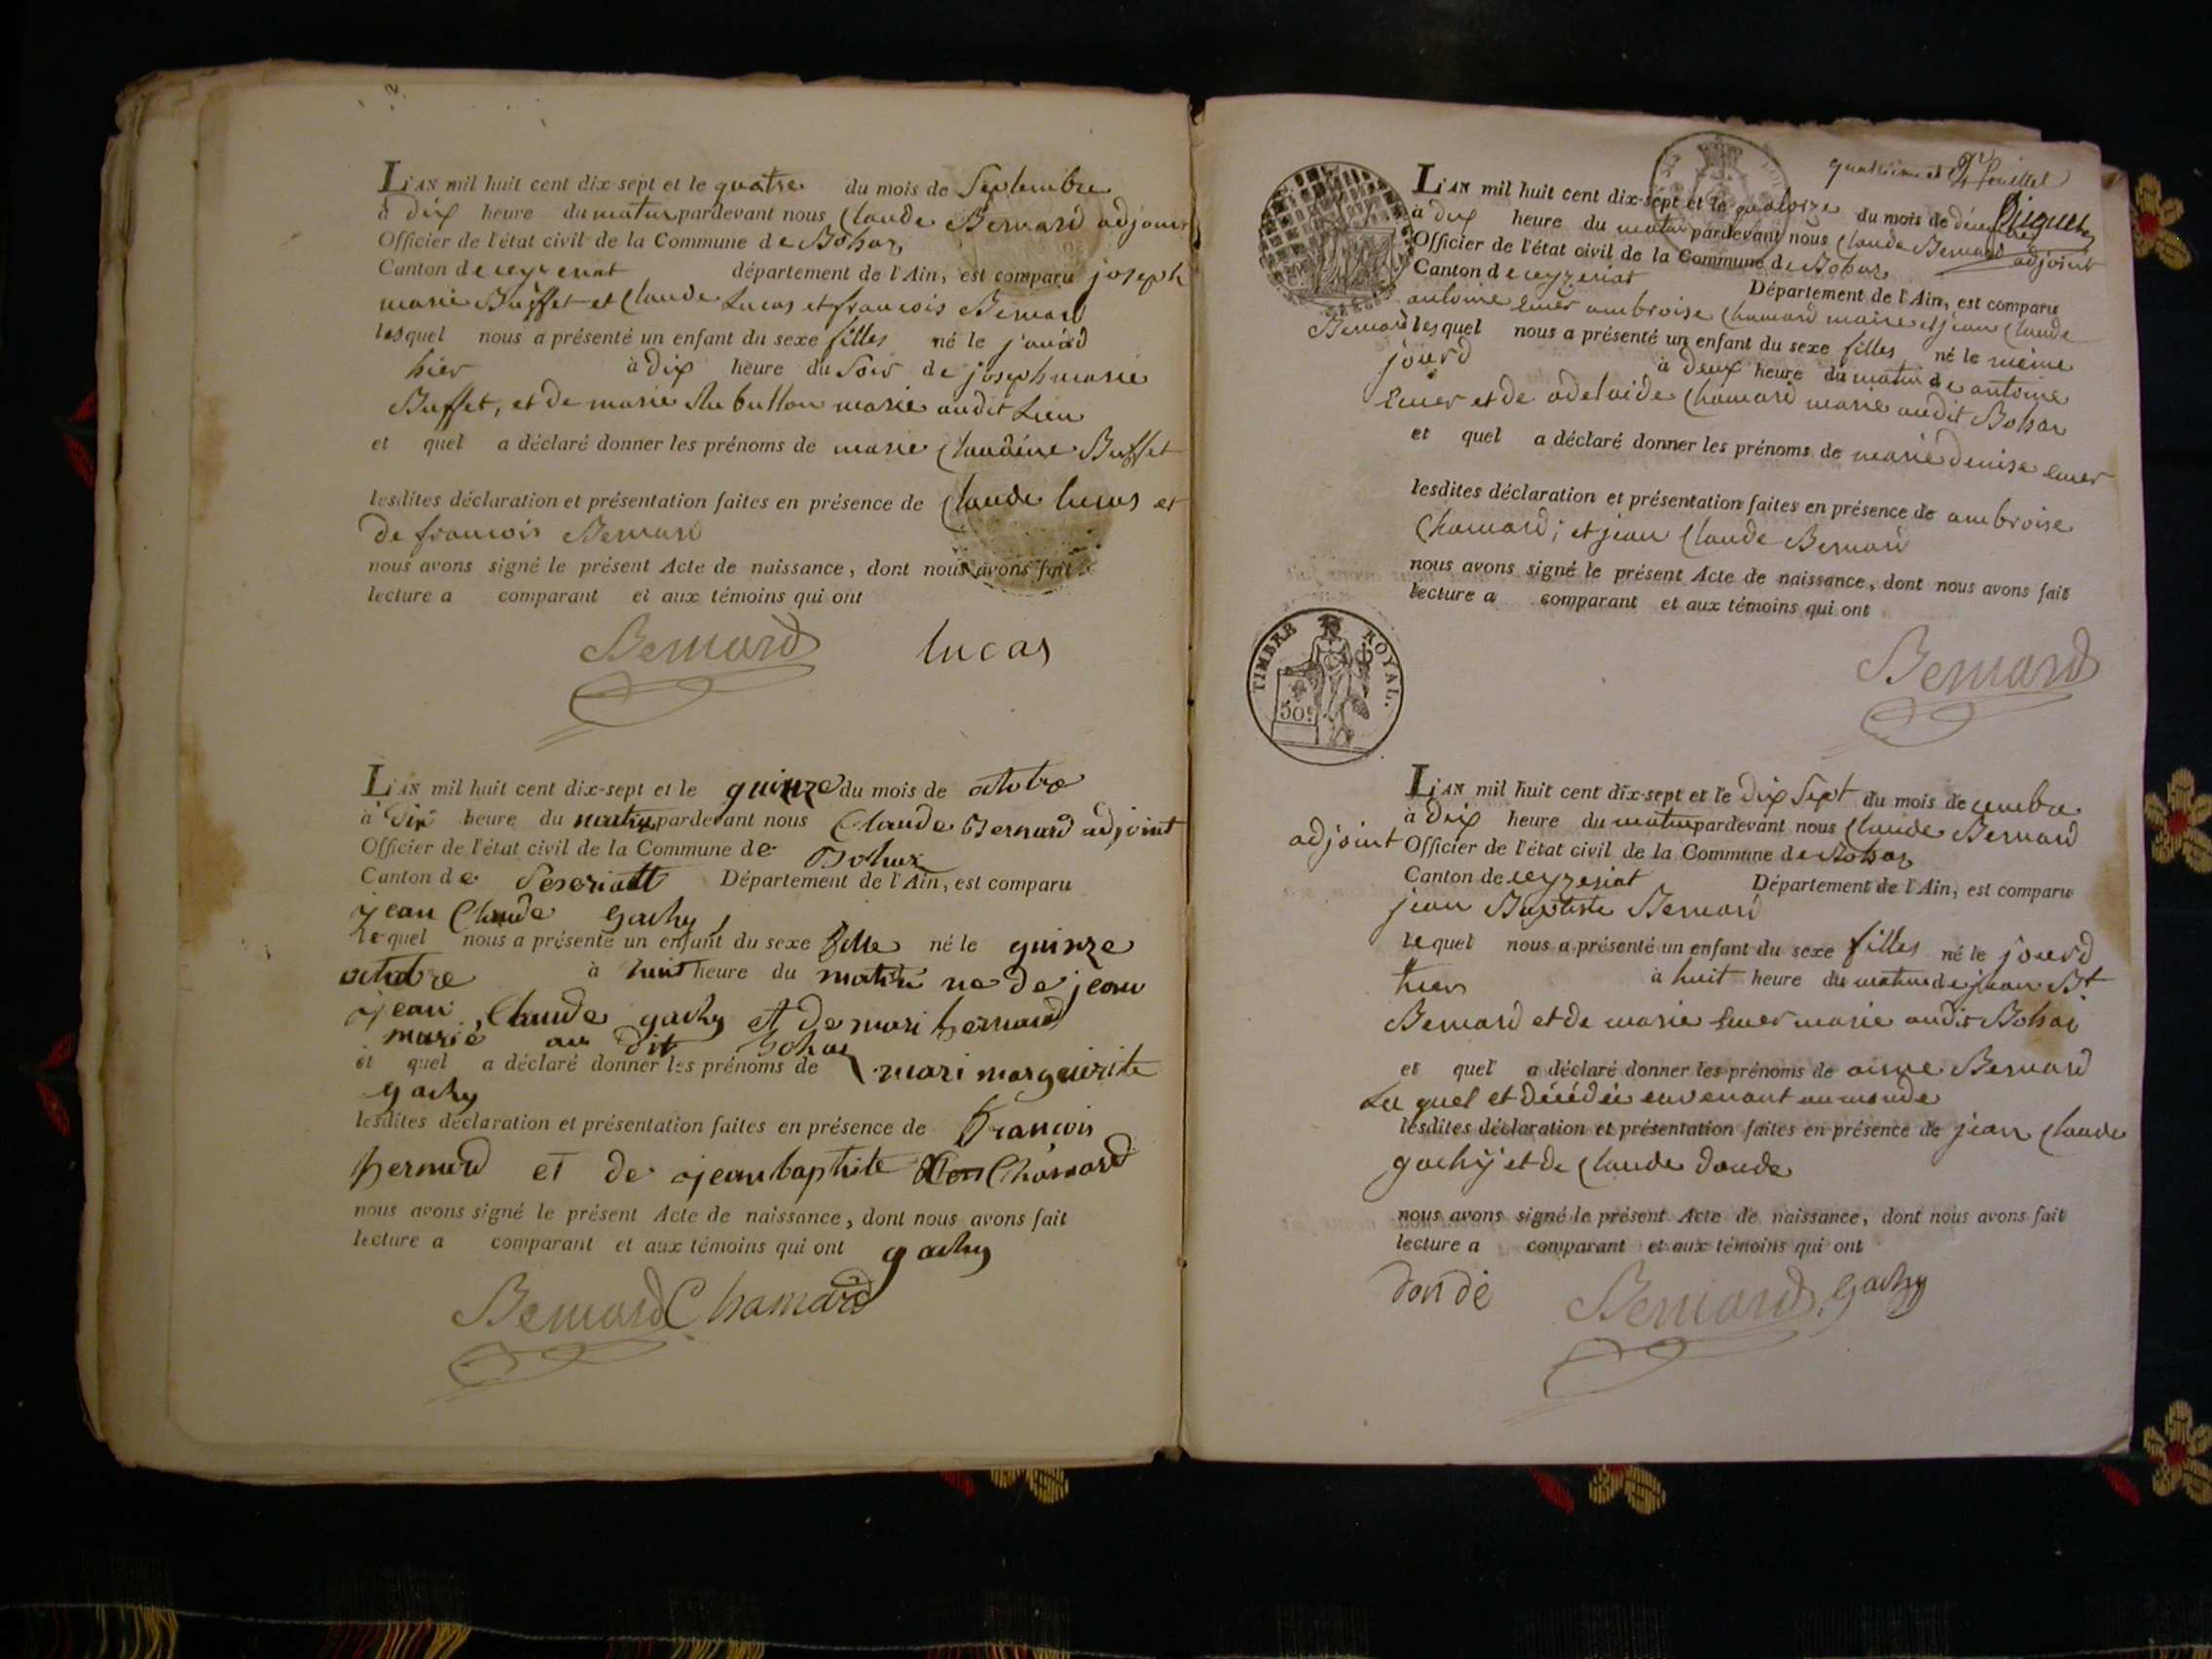 L'AN mil huit cent dix-sept et le quatre du mois de Septembre
à dix heure du matin pardevant nous Claude Bernard adjoint
Officier de l'état civil de la Commune de Bohas
Canton de ceyzeriat département de l'Ain, est comparu joseph
marie Buffet et Claude Lucas et francois Bernard
lesquel nous a présenté un enfant du sexe filles né le
hier à dix heure du Soir de joseph marie
Buffet, et de marie marié audit Lieu
et quel a déclaré donner les prénoms de marie Claudine Buffet
lesdites déclaration et présentation faites en présence de Claude lucas et
de francois Bernard
nous avons signé le présent Acte de naissance, dont nous avons fait
lecture a comparant et aux témoins qui ont
Bernard lucas
L'AN mil huit cent dix-sept et le quinze du mois de octobre
à dix heure du matin pardevant nous Claude Bernard adjoint
Officier de l'état civil de la Commune de Bohas
Canton de Département de l'Ain, est comparu
jean Claude gachy
Lequel nous a présenté un enfant du sexe fille né le quinze
octobre à huit heure du matin ne de jean
jean Claude gachy et de mari bernard
marié au dit bohas
et quel a déclaré donner les prénoms de mari marguerite
gachy
lesdites déclaration et présentation faites en présence de francois
bernard et de jean baptiste Chamard
nous avons signé le présent Acte de naissance, dont nous avons fait
lecture a comparant et aux témoins qui ont gachy
Bernard Chamard
quatrième et feuillet
L'AN mil huit cent dix-sept et le quatorze du mois de
à dix heure du matin pardevant nous Claude Bernard adjoint
Officier de l'état civil de la Commune de Bohas
Canton de ceyzeriat Département de l'Ain, est comparu
antoine ambroise Chamard maire et jean Claude
Bernard lesquel nous a présenté un enfant du sexe filles né le même
jourd à deux heure du matin de antoine
et de adelaide Chamard marié audit Bohas
et quel a déclaré donner les prénoms de marie denise
lesdites déclaration et présentation faites en présence de ambroise
Chamard; et jean Claude Bernard
nous avons signé le présent Acte de naissance, dont nous avons fait
lecture a comparant et aux témoins qui ont
TIMBRE ROYAL.
50c
Bernard
L'AN mil huit cent dix-sept et le dix Sept du mois de cembre
à dix heure du matin pardevant nous Claude Bernard
adjoint Officier de l'état civil de la Commune de Bohas
Canton de ceyzeriat Département de l'Ain, est comparu
jean Baptiste Bernard
lequel nous a présenté un enfant du sexe filles né le jourd
hier à huit heure du matin de jean Bt
Bernard et de marie marié audit Bohas
et quel a déclaré donner les prénoms de Bernard
Le quel et décédé en venant au monde
lesdites déclaration et présentation faites en présence de jean Claude
gachy et de Claude donde
nous avons signé le présent Acte de naissance, dont nous avons fait
lecture a comparant et aux témoins qui ont
donde Bernard gachy